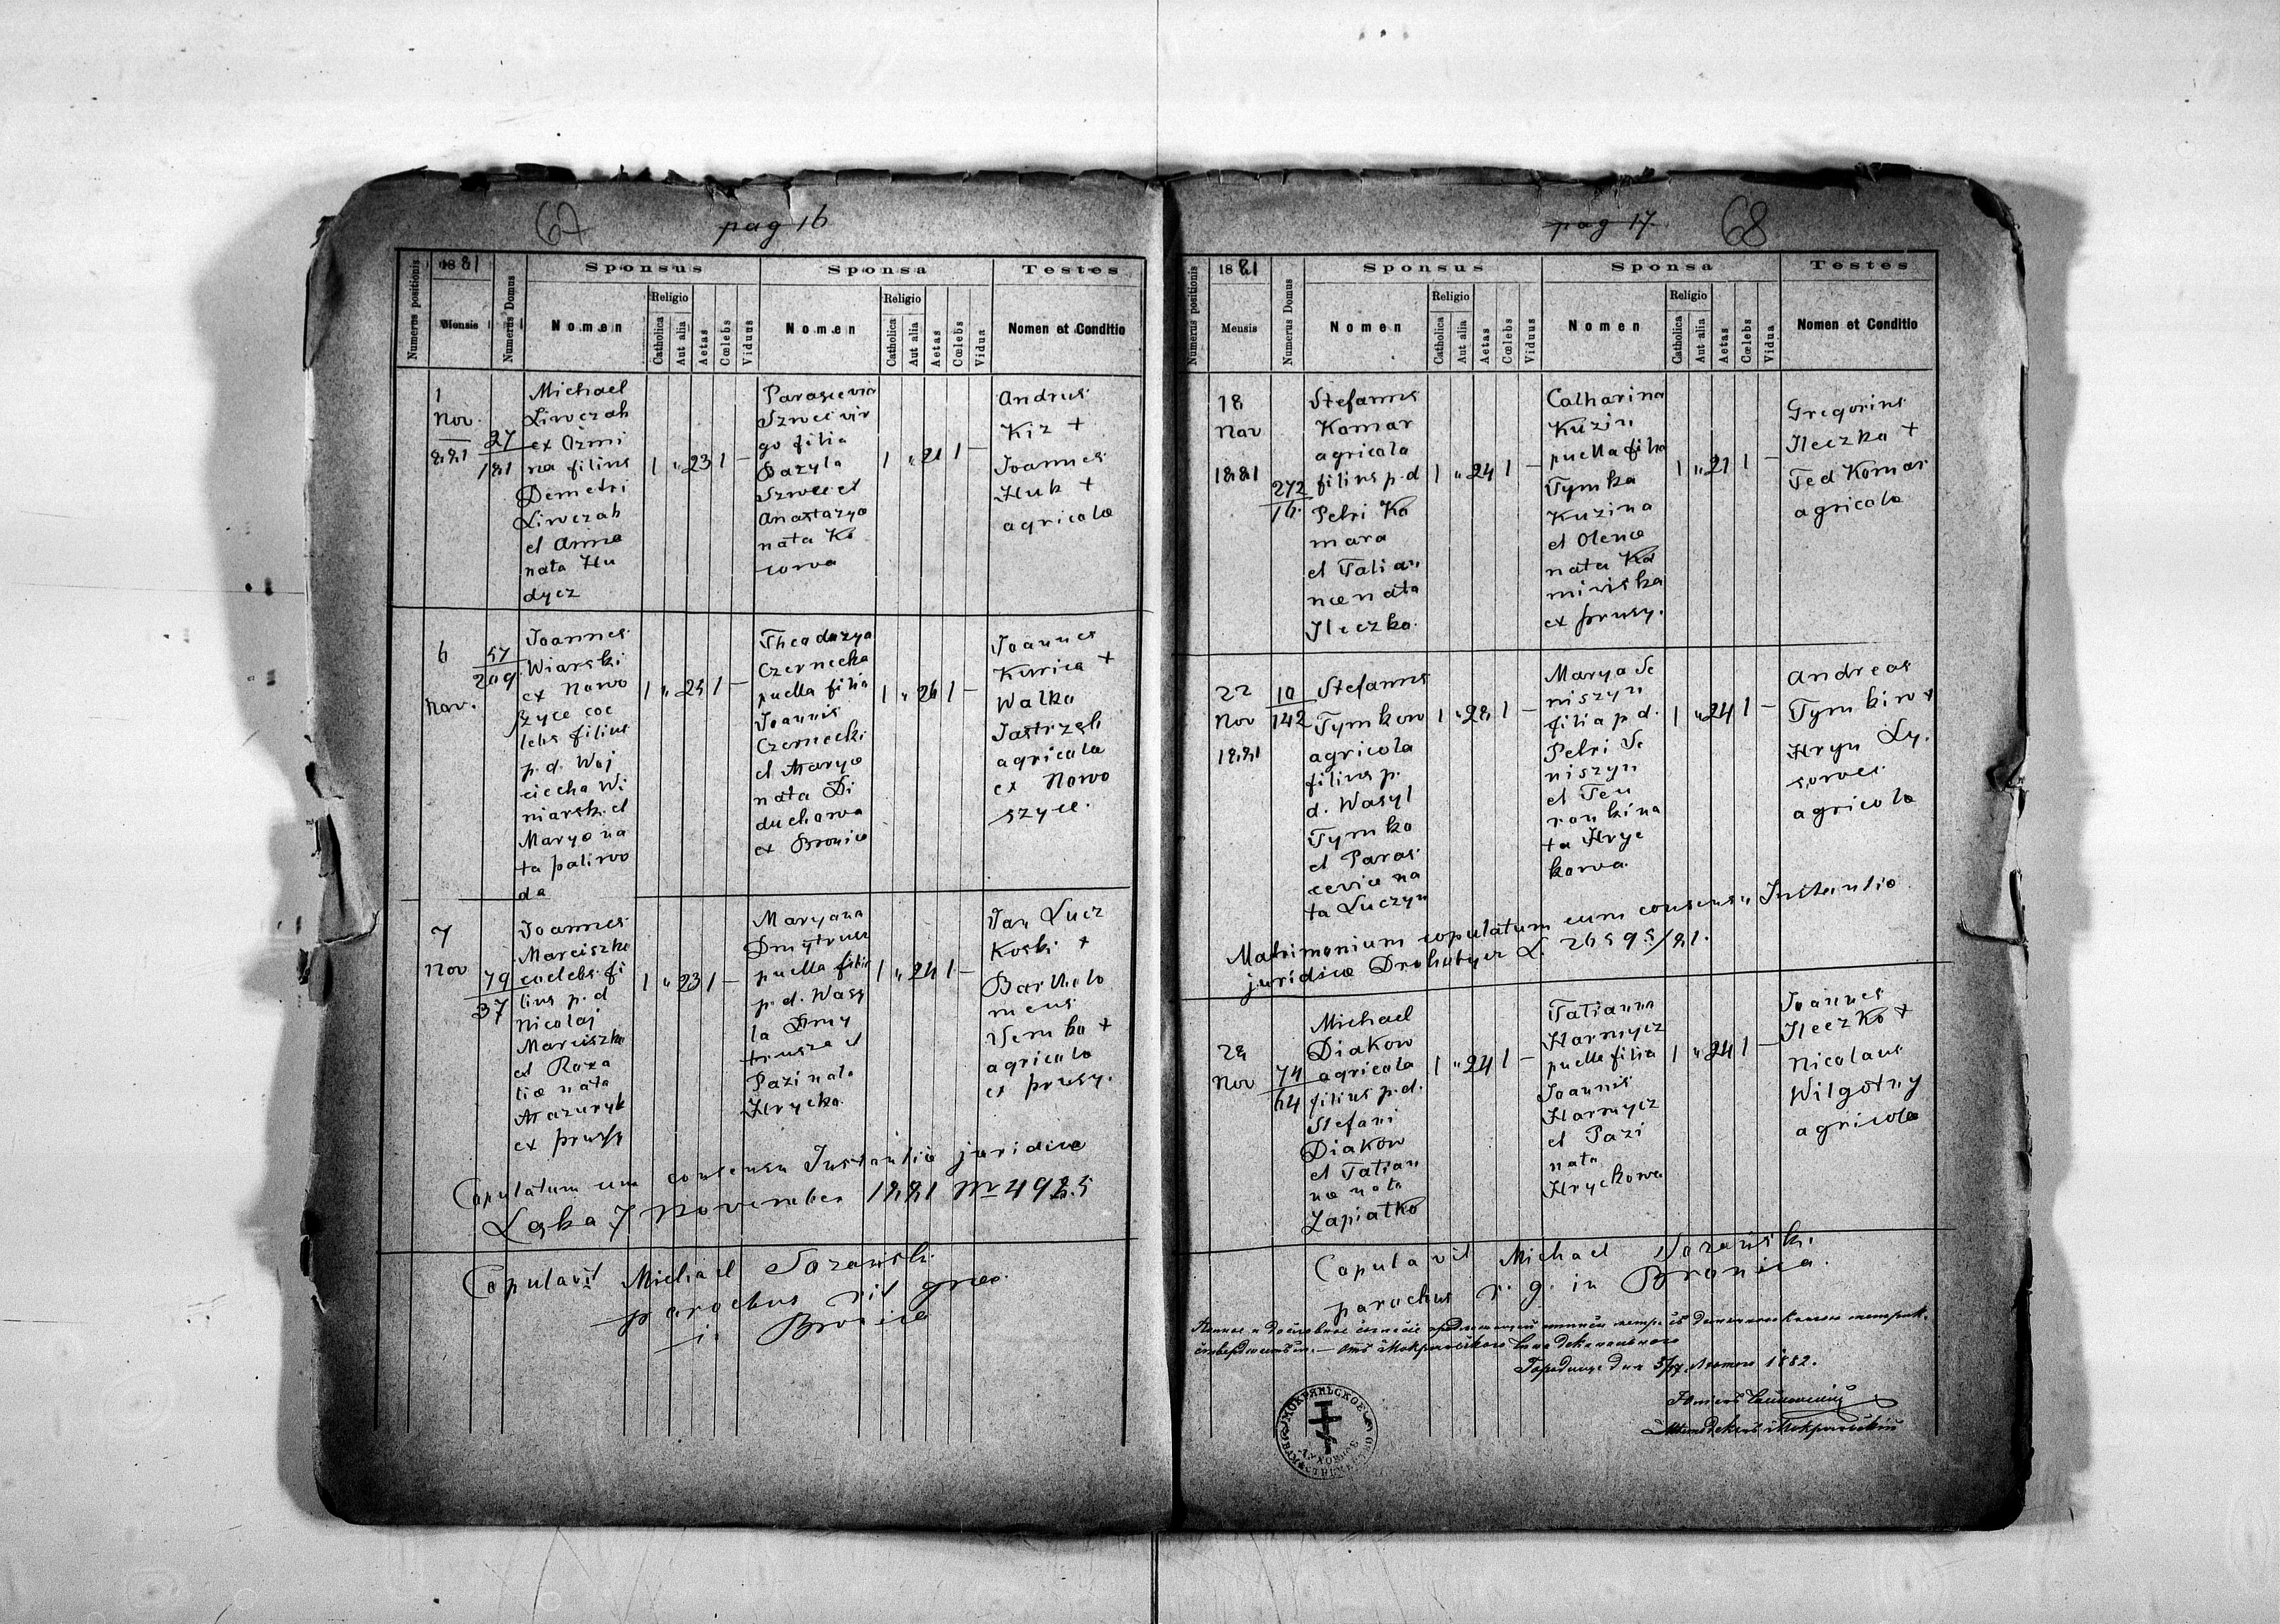 67
pag 16
Numerus positionis
1881
Mensis
Numerus Domus
Sponsus
Sponsa
Testes
Nomen
Religio
Catholica
Aut alia
Aetas
Cœlebs
Viduus
Nomen
Religio
Catholica
Aut alia
Aetas
Cœlebs
Vidua
Nomen et Conditio
1
Nov.
881
27
181
Michael
Liwczak
ex Ozmi
na filius
Demetri
Liwczak
et Anna
nata Hu
dycz
1 " 23 1 –
Parascevia
Szwec vir
go filia
Bazyla
Szwec et
Anastazya
nata Ko
cowa
1 " 21 1 –
Andrus
Kiz +
Joannes
Huk +
agricola
6
Nov.
57
209
Joannes
Wiarski
ex Nowo
szyce coe
lebs filius
p. d. Woj
ciecha Wi
niarski et
Marya na
ta paliwo
da
1 " 25 1 –
Theodozya
Czernecka
puella filia
Joannis
Czernecki
et Marya
nata Di
duchowa
ex Bronica
1 " 26 1 –
Joannes
Kurica +
Walko
Jastrzeb
agricola
ex Nowo
szyce.
7
Nov
79
37
Joannes
Marciszko
coelebs fi
lius p. d
Nicolaj
Marciszko
et Roza
lia nata
Mazuryk
ex prusy
1 " 23 1 –
Maryana
Dmytrusz
puella filia
p. d. Wasy
la Dmy
trusza et
Pazi nata
Hrycko.
1 " 24 1 –
Jan Lucz
Koski +
Bartholo
meus
Semko +
agricola
ex prusy.
Copulatum cum consensu Instantia juridica
Łąka 7 November 1881 № 4985
Copulavit Michael Sozański
parochus rit graec.
in Bronica
pag 17.
68
Numerus positionis
1881
Mensis
Numerus Domus
Sponsus
Sponsa
Testes
Nomen
Religio
Catholica
Aut alia
Aetas
Cœlebs
Viduus
Nomen
Religio
Catholica
Aut alia
Aetas
Cœlebs
Vidua
Nomen et Conditio
18
Nov
1881
272
76.
Stefanus
Komar
agricola
filius p. d
Petri Ko
mara
et Tatian
nae nata
Ileczko.
1 " 24 1 –
Catharina
Kuzin
puella filia
Tymka
Kuzina
et Olena
nata Ka
mińska
ex prusy.
1 " 21 1 –
Gregorius
Ileczko +
Fed Komar
agricola
22
Nov
1881
10
142
Stefanus
Tymkow
agricola
filius p.
d. Wasyl
Tymko
et Paras
cevia na
ta Luczyn
1 " 28 1 –
Marya Se
niszyn
filia p. d.
Petri Se
niszyn
et Feu
ronkina
ta Hryc
kowa.
1 " 24 1 –
Andreas
Tymkiw +
Hryn Ly.
sowes
agricola
Matrimonium copulatum cum consensu Instantia
juridica Drohobycz L. 26595/81.
28
Nov
74
64
Michael
Diakow
agricola
filius p. d.
Stefani
Diakow
et Tatian
nae nata
Zapiatko
1 " 24 1 –
Tatianna
Harmycz
puella filia
Joannis
Harmycz
et Pazi
nata
Hryckowa
1 " 24 1 –
Joannes
Ileczko +
Nicolaus
Wilgotny
agricola
Copulavit Michael Sozański.
parochus r. g. in Bronica.
1882.
МОКРЯНЬСКОЕ